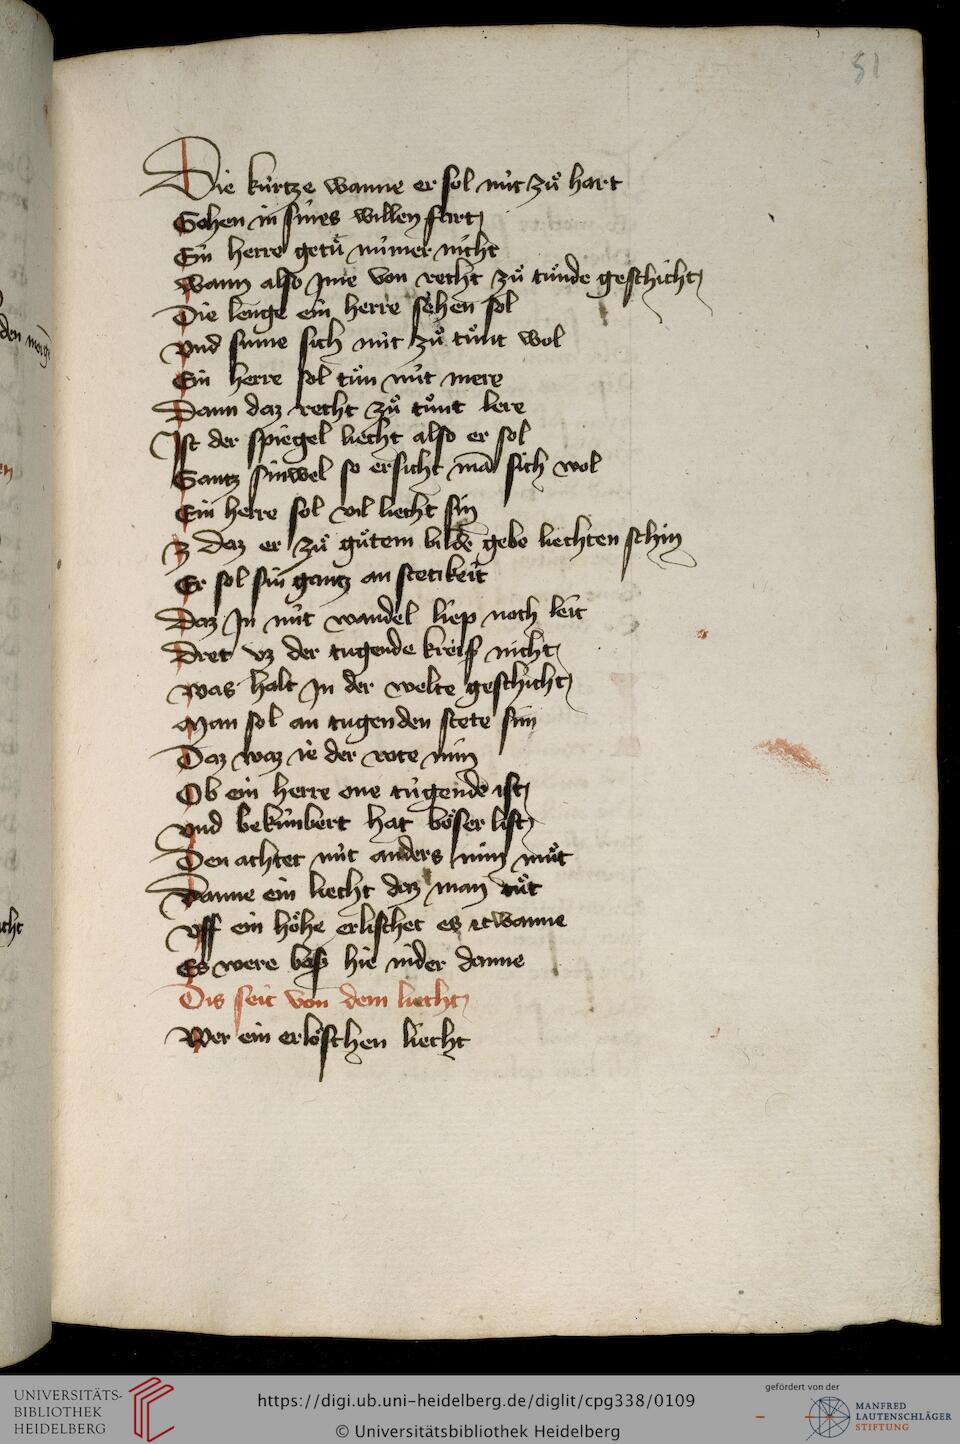 51
Die kúrtze wanne er sol nút zuͦ hart
Gohen in sines willen fart
Ein herre getuͦ númer nicht
Wann also Jme von recht zuͦ tuͦnde geschicht
Die lenge ein herre sehen sol
Vnd sinne sich nút zuͦ tuͦnt wol
Ein herre sol tuͦn nút mere
Dann daz recht zuͦ tuͦnt lere
Jst der spiegel liecht also er sol
Gantz sinwel so ersicht mā sich wol
Ein herre sol vil liecht sin
daz er zuͦ guͦtem bilde gebe liechten schin
Er sol sin gantz an stetikeit
Daz Jn nút wandel liep noch leit
Dret vz der tugende kreiß nicht
Was halt Jn der welte geschicht
Man sol an tugenden stete sin
Daz waz ie der rote min
Ob ein herre one túgende ist
Vnd bekúnbert hat böser list
Den achtet nút anders min muͦt
Danne ein liecht daz man tuͦt
Vff ein höhe erlischet es etwanne
Es were böß hie nider danne
Dis seit von dem liecht
Wer ein erlöschen liecht
UNIVERSITÄTS-
BIBLIOTHEK
HEIDELBERG
https://digi.ub.uni-heidelberg.de/diglit/cpg338/0109
© Universitätsbibliothek Heidelberg
gefördert von der
MANFRED
LAUTENSCHLÄGER
STIFTUNG